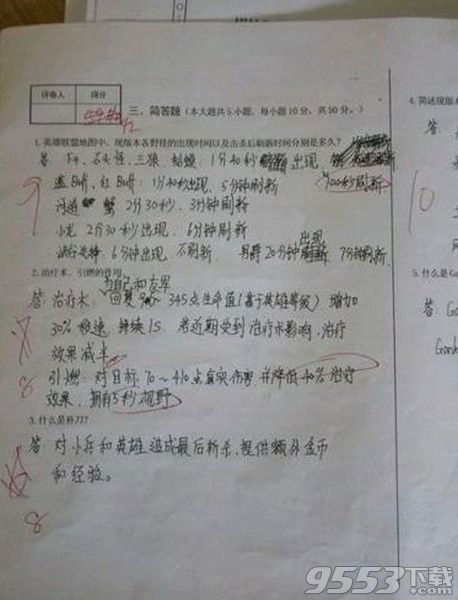 评卷人 得分
三、简答题(本大题共5小题,每小题10分,共50分。)
1.英雄联盟地图中,现版本各野怪的出现时间以及击杀后刷新时间分别是多久?
答 F4、石头怪、三狼、蛤蟆:1分40秒出现,100秒刷新
蓝Buff、红Buff:1分40秒出现,5分钟刷新
河道蟹 2分30秒,3分钟刷新
小龙 2分30秒出现,6分钟刷新
峡谷先锋:6分钟出现,不刷新 男爵20分钟出现 7分钟刷新
9
2.治疗术、引燃的作用
答:治疗术:为自己和友军回复90~345点生命值(基于英雄等级)增加
30%移速,持续1S.若近期受到治疗术影响,治疗
效果减半
引燃:对目标70~410点真实伤害并降低40%治疗
效果,拥有5秒视野
8
3.什么是补刀?
答:对小兵和英雄造成最后斩杀,提供额外金币
和经验。
8
4.简述现版本
答
10
5.什么是G
答:Go
Gank
9553下载
.com